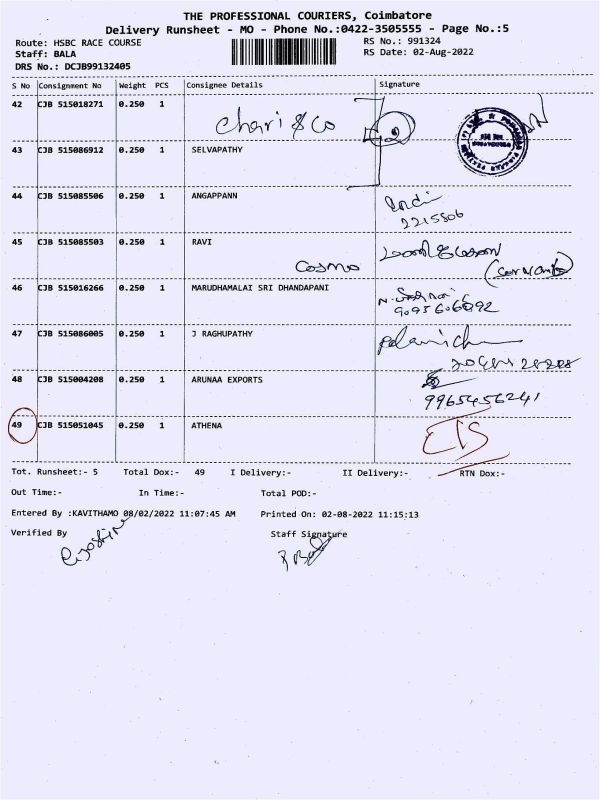 THE PROFESSIONAL COURIERS, Coimbatore
Delivery Runsheet - MO - Phone No.:0422-3505555 - Page No.:5
Route: HSBC RACE COURSE RS No.: 991324
Staff: BALA RS Date: 02-Aug-2022
DRS No.: DCJB99132405
S No Consignment No Weight PCS Consignee Details Signature
42 CJB 515018271 0.250 1
Chari & Co
43 CJB 515086912 0.250 1 SELVAPATHY
44 CJB 515085506 0.250 1 ANGAPPANN
2215806
45 CJB 515085503 0.250 1 RAVI
Cosmo
46 CJB 515016266 0.250 1 MARUDHAMALAI SRI DHANDAPANI
47 CJB 515086005 0.250 1 J RAGHUPATHY
48 CJB 515004208 0.250 1 ARUNAA EXPORTS
9965456241
49 CJB 515051045 0.250 1 ATHENA
Tot. Runsheet:- 5 Total Dox:- 49 I Delivery:- II Delivery:- RTN Dox:-
Out Time:- In Time:- Total POD:-
Entered By :KAVITHAMO 08/02/2022 11:07:45 AM Printed On: 02-08-2022 11:15:13
Verified By Staff Signature